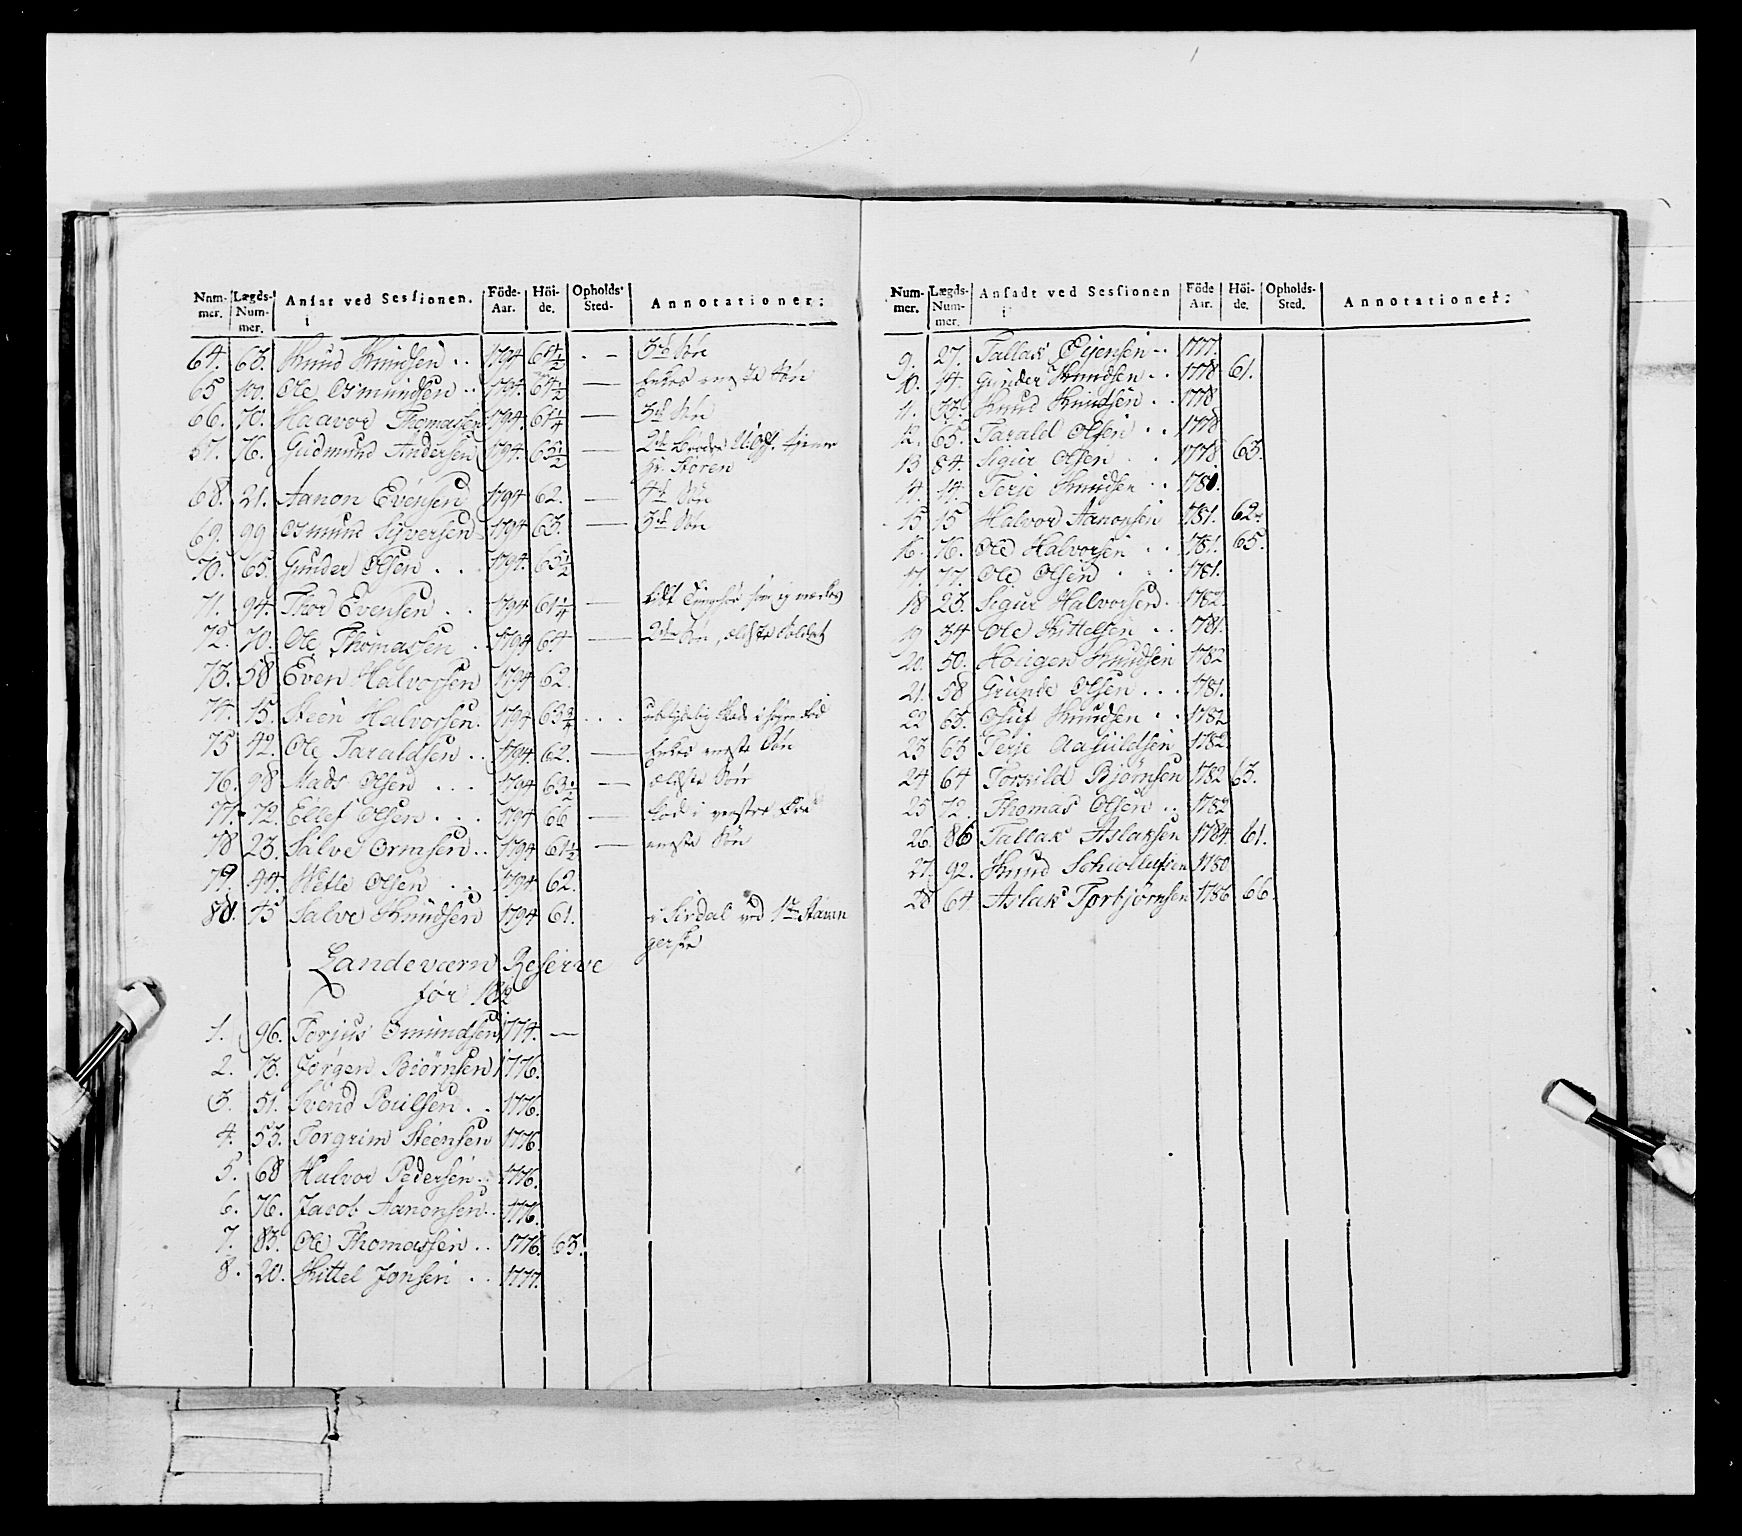 Num- Lægds- Ansat ved Sessionen. Föde- Höi- Opholds- Annotationer:
mer. Num- Aar. de. Sted-
mer.
64. 63. Knud Knudsen .. 1794 64½ . – 3d Søn
65 100. Ole Osmundsen .. 1794. 64½ — Enkes eneste Søn
66. 70. Haavor Thomassen 1794. 61¼ — 3d Søn
67. 76. Gudmund Andersen 1794. 63½ — 2de tiener
hr. Støren
68. 21. Aanon Evensen 1794 62. — 4d Søn
69. 99 Osmund Siversen 1794 63. — 3d Søn
70. 65. Gunder Olsen ... 1794. 63½
71. 94. Thor Evensen .. 1794 61¼ —
72. 70. Ole Thomassen . 1794 64 — 2den Søn, ældste Soldat
73. 58 Even Halvorsen 1794 62.
74. 15. Steen Halvorsen. 1794 63¾ ... ubetydelig Skade i høyre Fod
75 42. Ole Taraldsen .. 1794. 62. — Enkes eneste Søn
76. 98 Mads Olsen ... 1794 63½ — ældste Søn
77. 72. Elief Olsen ... 1794 66 — Skade i venstre Fod
78 23. Salve Ormsen .. 1794 61½ — eneste Søn
79. 44. Wetle Olsen .. 1794 62.
80. 45 Salve Knudsen 1794 61. i Sirdal ved 1te Stavan
gerske
Landeværn Reserve
før 1812
1. 96. Terjus Omundsen 1774. —
2. 73. Jørgen Biørnsen 1776.
3. 51. Svend Poulsen .. 1776.
4. 53. Torgrim Steensen 1776.
5. 68 Halvor Pedersen .. 1776.
6. 76. Jacob Aanonsen .. 1776.
7. 83. Ole Thomassen .. 1776. 63.
8. 20. Kittel Jonsen .. 1777.
Num- Lægds- Ansadt ved Sessionen Föde Höi- Opholds- Annotationer:
mer. Num- Aar. de. Sted.
mer.
9. 27. Tallak Eijensen .. 1777.
10. 14. Gunder Knudsen .. 1778 61.
11. 33. Knud Knudsen .. 1778
12. 65. Tarald Olsen .. 1778
13 84. Sigur Olsen .. 1778 63.
14. 14. Terje Knudsen .. 1781.
15 15 Halvor Aanonsen 1781. 62.
16. 76. Ole Halvorsen .. 1781. 65.
17. 77. Ole Olsen . . 1781.
18 23. Sigur Halvorsen. 1782.
19 34 Ole Kittelsen .. 1781.
20. 50. Hougen Knudsen 1782
21. 58 Grunde Olsen ... 1781.
22 63. Oluf Knudsen .. 1782
23 63 Terje Aasuldsen 1782.
24 64 Torkild Biørnsen 1782 63.
25 72. Thomas Olsen .. 1782
26. 86 Tallak Aslaksen 1784. 61.
27. 92. Knud Schiollefsen 1780
28 64 Aslak Torbjørnsen 1786 66.